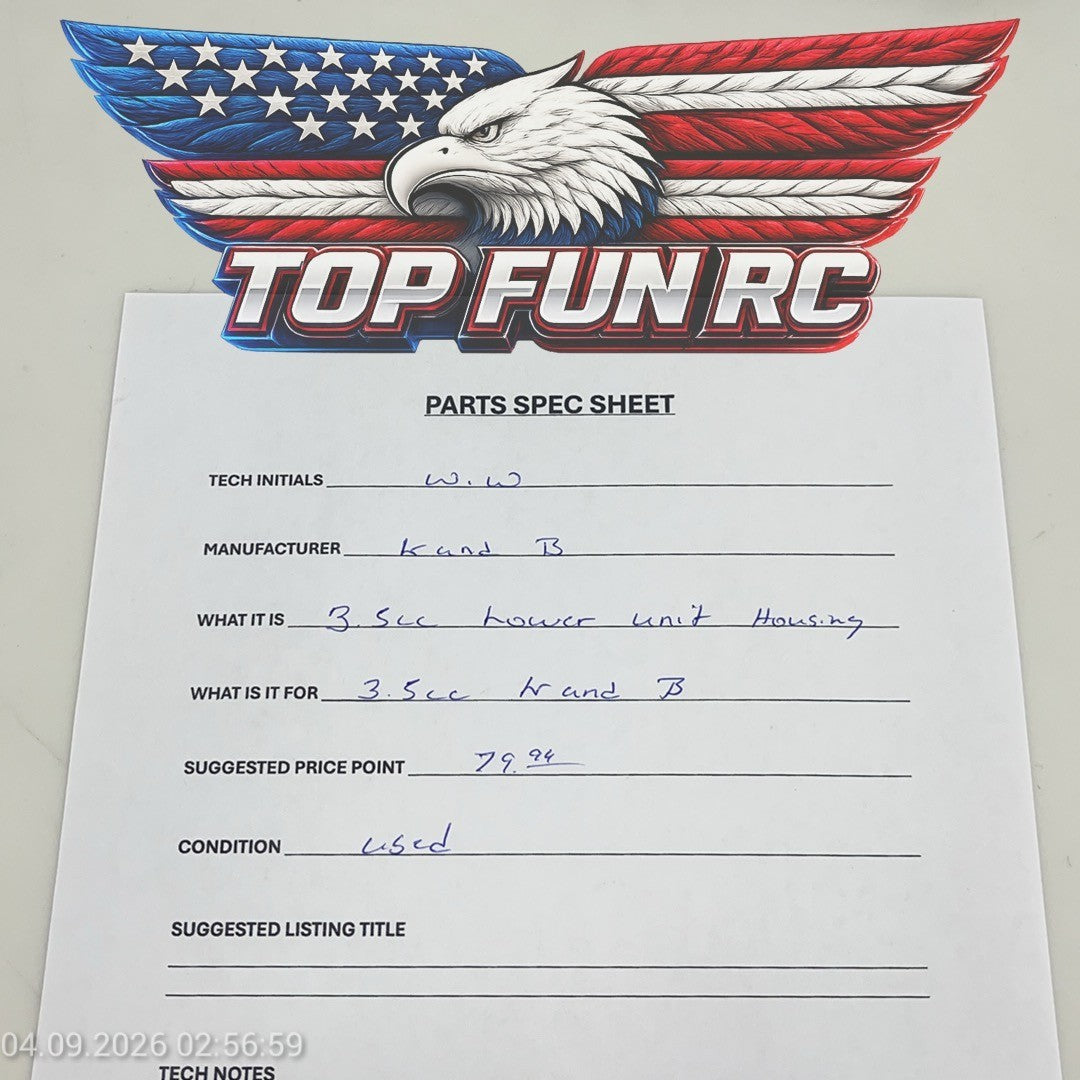 TOP FUN RC
PARTS SPEC SHEET
TECH INITIALS W.W
MANUFACTURER K and B
WHAT IT IS 3.5cc Lower unit Housing
WHAT IS IT FOR 3.5cc K and B
SUGGESTED PRICE POINT 79.94
CONDITION used
SUGGESTED LISTING TITLE
04.09.2026 02:56:59
TECH NOTES